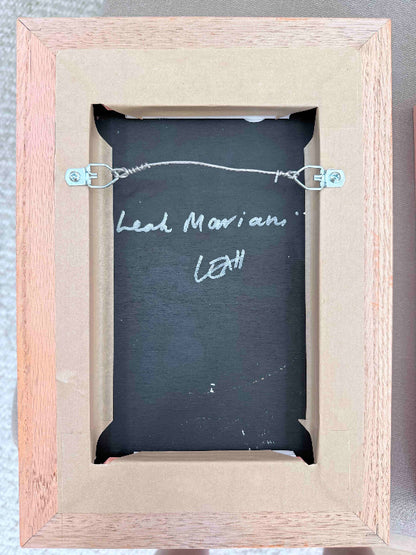 Leah Mariani
LEAH